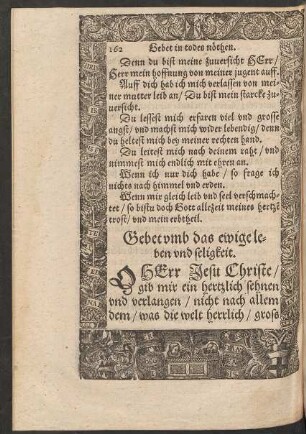 162 Gebet in todes nöthen.
Denn du bist meine zuuersicht HErr /
Herr mein hoffnung von meiner jugent auff.
Auff dich hab ich mich verlassen von mei-
ner mutter leib an / Du bist mein starcke zu-
uersicht.
Du lessest mich erfaren viel vnd grosse
angst / vnd machst mich wider lebendig / denn
du heltest mich bey meiner rechten hand.
Du leitest mich nach deinem raht / vnd
nimmest mich endlich mit ehren an.
Wenn ich nur dich habe / so frage ich
nichts nach himmel vnd erden.
Wenn mir gleich leib vnd seel verschmach-
tet / so bistu doch Gott allezeit meines hertzē
trost / vnd mein erbtheil.
Gebet vmb das ewige le-
ben vnd seligkeit.
O HErr Jesu Christe /
gib mir ein hertzlich sehnen
vnd verlangen / nicht nach allem
dem / was die welt herrlich / gross